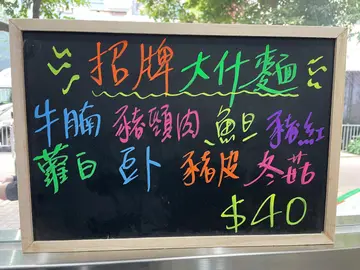 招牌大什麵
牛腩 豬頸肉 魚旦 豬紅
蘿白 豆卜 豬皮 冬菇
$40